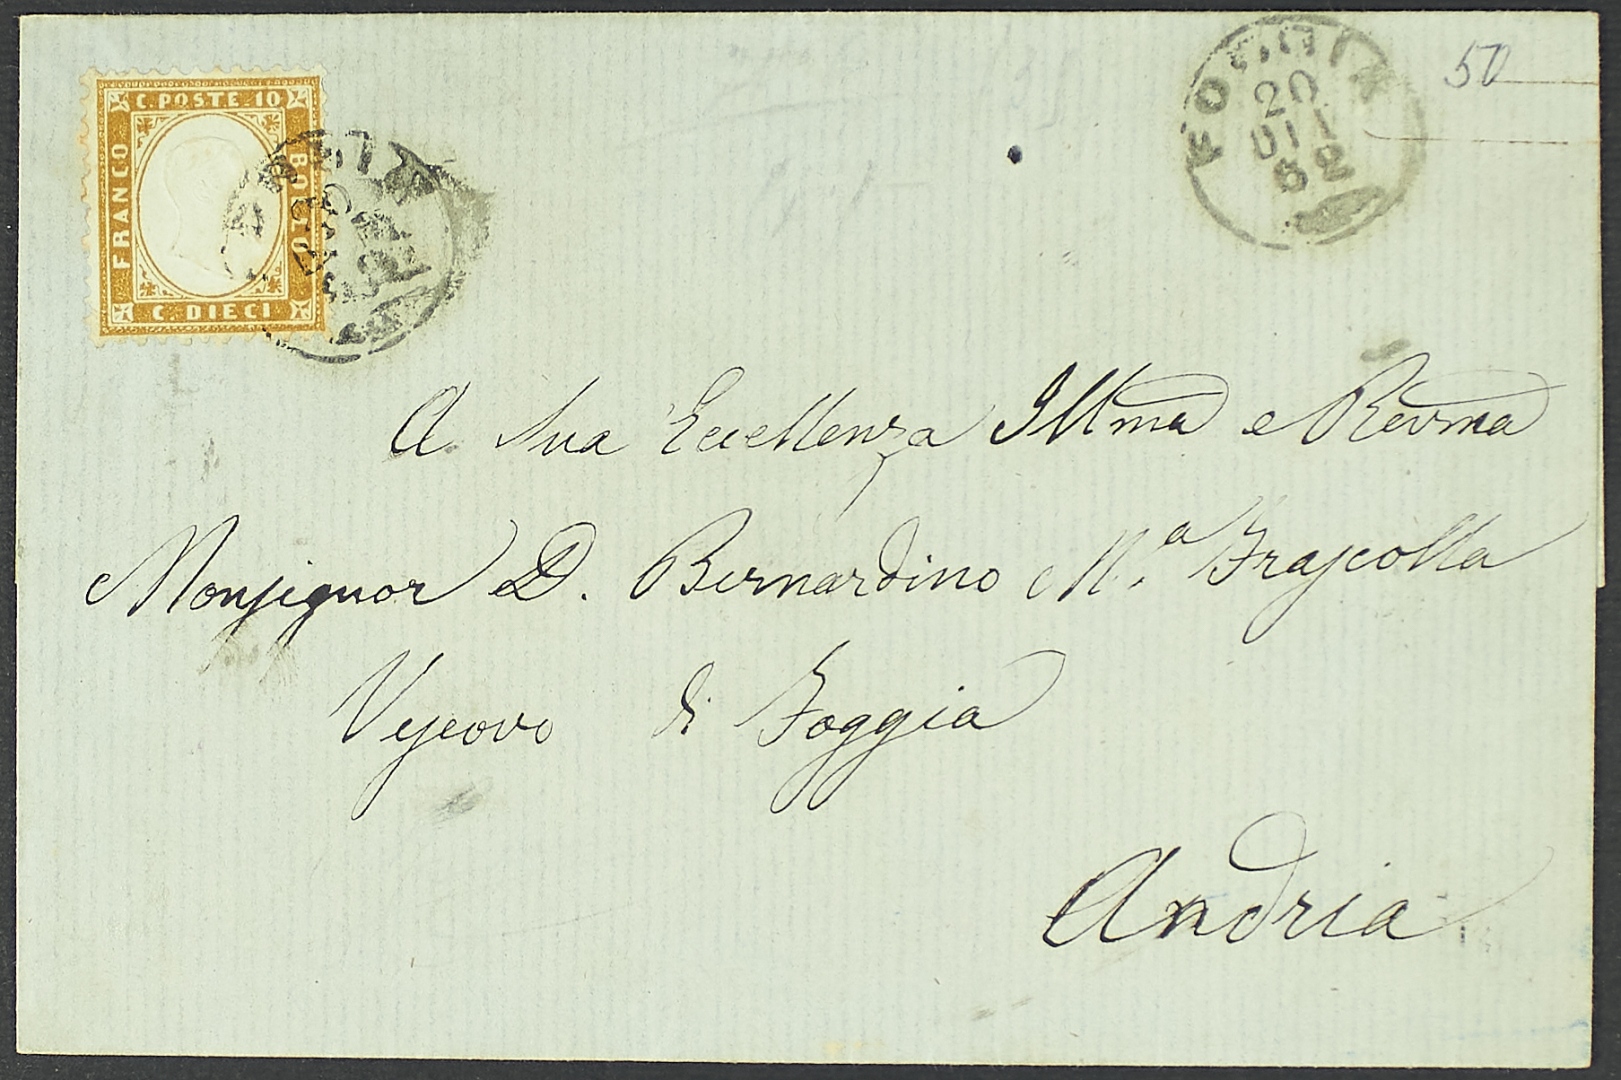 C. POSTE 10
FRANCO
BOLLO
C. DIECI
20
50
A Sua Eccellenza Illma e Revma
Monsignor D. Bernardino M.a Frascolla
Vescovo di Foggia
Andria